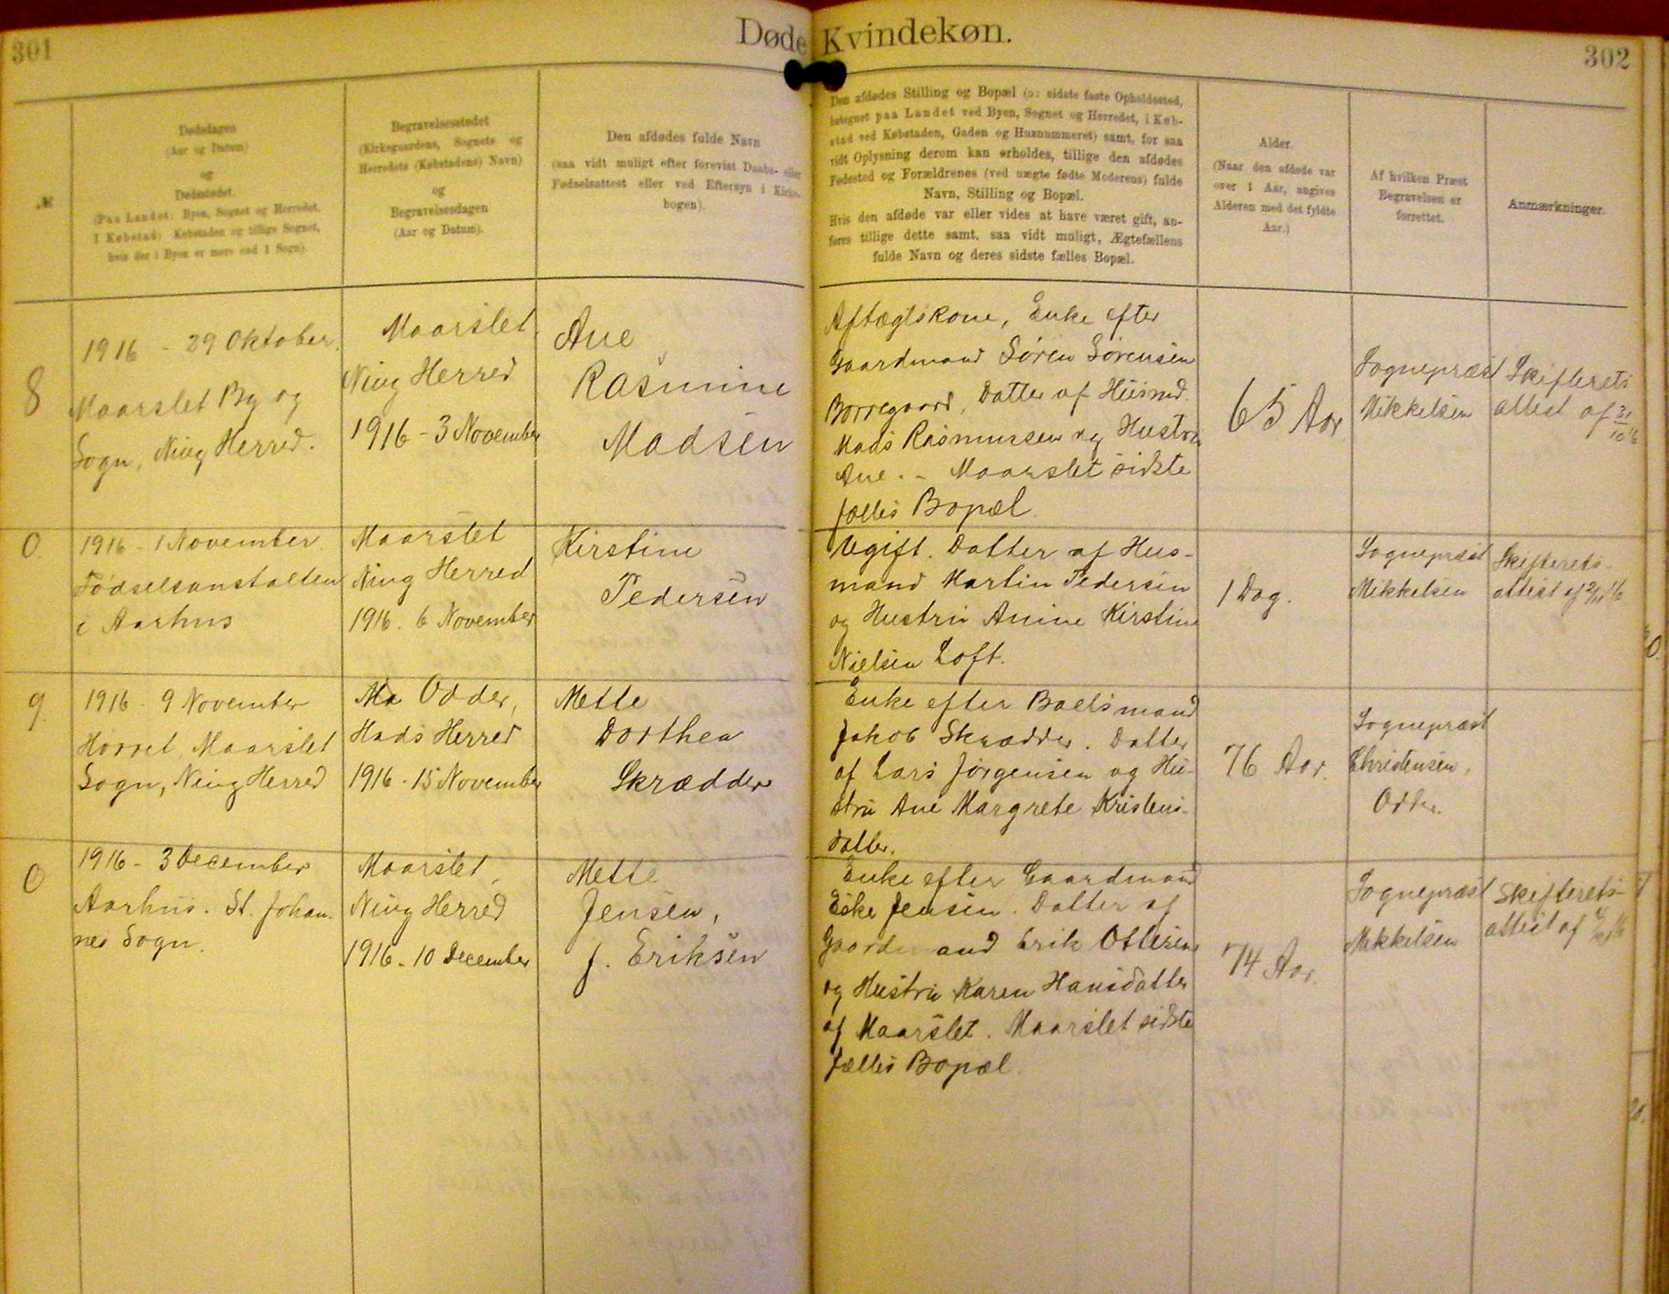 301
Døde Kvindekøn.
302
№
Dødsdagen
(Aar og Datum)
og
Dødsstedet.
(Paa Landet: Byen, Sognet og Herredet.
I Købstad: Købstaden og tillige Sognet,
hvis der i Byen er mere end 1 Sogn).
Begravelsesstedet
(Kirkegaardens, Sognets og
Herredets (Købstadens) Navn)
og
Begravelsesdagen
(Aar og Datum).
Den afdødes fulde Navn
(saa vidt muligt efter forevist Daabs- eller
Fødselsattest eller ved Eftersyn i Kirke-
bogen).
Den afdødes Stilling og Bopæl (o: sidste faste Opholdssted,
betegnet paa Landet ved Byen, Sognet og Herredet, i Køb-
stad ved Købstaden, Gaden og Husnummeret) samt, for saa
vidt Oplysning derom kan erholdes, tillige den afdødes
Fødested og Forældrenes (ved uægte fødte Moderens) fulde
Navn, Stilling og Bopæl.
Hvis den afdøde var eller vides at have været gift, an-
føres tillige dette samt, saa vidt muligt, Ægtefællens
fulde Navn og deres sidste fælles Bopæl.
Alder.
(Naar den afdøde var
over 1 Aar, angives
Alderen med det fyldte
Aar.)
Af hvilken Præst
Begravelsen er
forrettet.
Anmærkninger.
8
1916 - 29 Oktober.
Maarslet By og
Sogn, Ning Herred.
Maarslet
Ning Herred
1916 - 3 November
Ane
Rasmine
Madsen
Aftægtskone, Enke efter
Gaardmand Søren Sørensen
Borregaard, Datter af Husmd.
Mads Rasmussen og Hustru
Ane. - Maarslet sidste
fælles Bopæl.
65 Aar
Sognepræst
Mikkelsen
Skifterets
attest af 31/10 16
0
1916 - 1 November
Fødselsanstalten
i Aarhus
Maarslet
Ning Herred
1916. 6 November
Kirstine
Pedersen
Ugift. Datter af Hus-
mand Martin Pedersen
og Hustru Anine Kirstine
Nielsen Loft.
1 Dag.
Sognepræst
Mikkelsen
Skifterets-
attest af
9.
1916 - 9 November
Hørret, Maarslet
Sogn, Ning Herred
Odder,
Hads Herred
1916 - 15 November
Mette
Dorthea
Skrædder
Enke efter Boelsmand
Jakob Skrædder. Datter
af Lars Jørgensen og Hu-
stru Ane Margrete Kristens-
datter.
76 Aar.
Sognepræst
Christensen,
Odder.
0
1916 - 3 December
Aarhus. St. Johan-
nes Sogn.
Maarslet,
Ning Herred
1916 - 10 December
Mette
Jensen,
f. Eriksen
Enke efter Gaardmand
Eske Jensen. Datter af
Gaardmand Erik Ottesen
og Hustru Karen Hansdatter
af Maarslet. Maarslet sidste
fælles Bopæl.
74 Aar.
Sognepræst
Mikkelsen
Skifterets-
attest af